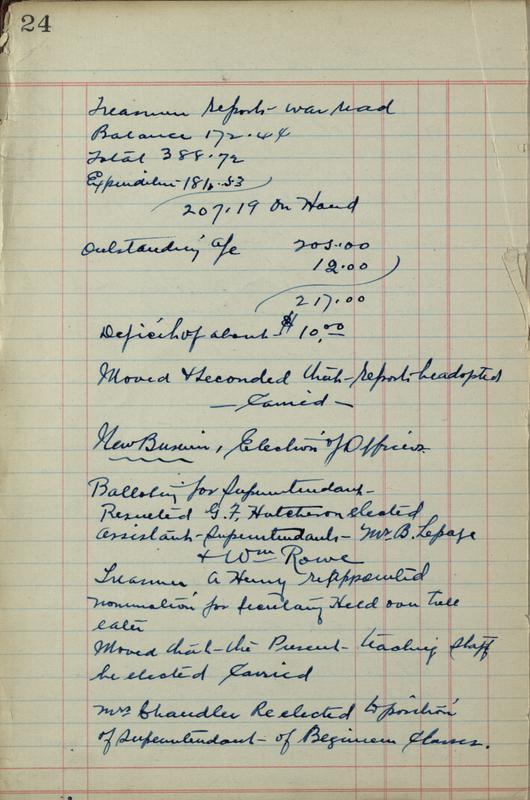 24
Treasurer Report was read
Balance 172.44
Total 388.72
Expenditure 181.53
207.19 On Hand
Outstanding a/c 205.00
12.00
217.00
Deficit of about $10.00
Moved & Seconded that report be adopted
— Carried —
New Business, Election of Officers
Balloting for Superintendant
Resulted G. F. Hutcheron elected
Assistant Superintendants Mr. B. Lepage
& Wm Rowe
Treasurer A Henry reappointed
nomination for Secretary Held over till
later
Moved that the Present teaching staff
be elected Carried
Mrs Chandler Reelected to position
of Superintendant of Beginners Classes.